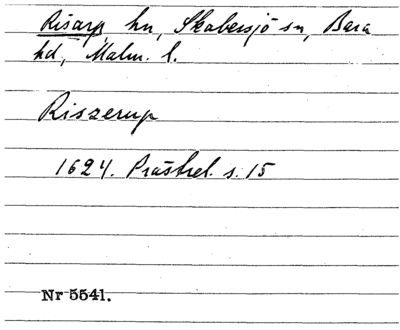 Risarp, hn, Skabersjö sn, Bara
hd, Malm. l.
Riszerup
1624. Prästrel. s. 15
Nr 5541.